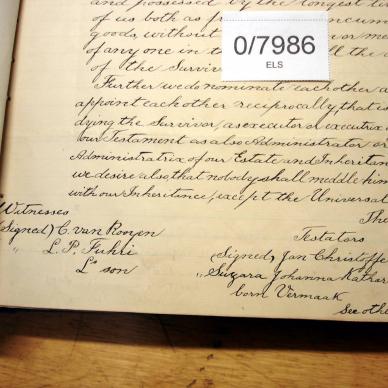 and possessed by the longest li
of us both as
goods, without
of any one in t the
of the Surviv
0/7986
ELS
Further we do nominate each other a
appoint each other reciprocally, that is
dying the Survivor, as executor a executrix
our Testament as also Administrator or
Administratrix of our Estate and Inheritan
we desire also that nobody shall meddle him
with our Inheritance, except the Universal
The
Witnesses
(Signed) C. van Rooyen
" L. P. Fuhri
Ls son
Testators
(Signed) Jan Christoffe
" Suzara Johanna Kathar
born Vermaak
See othe